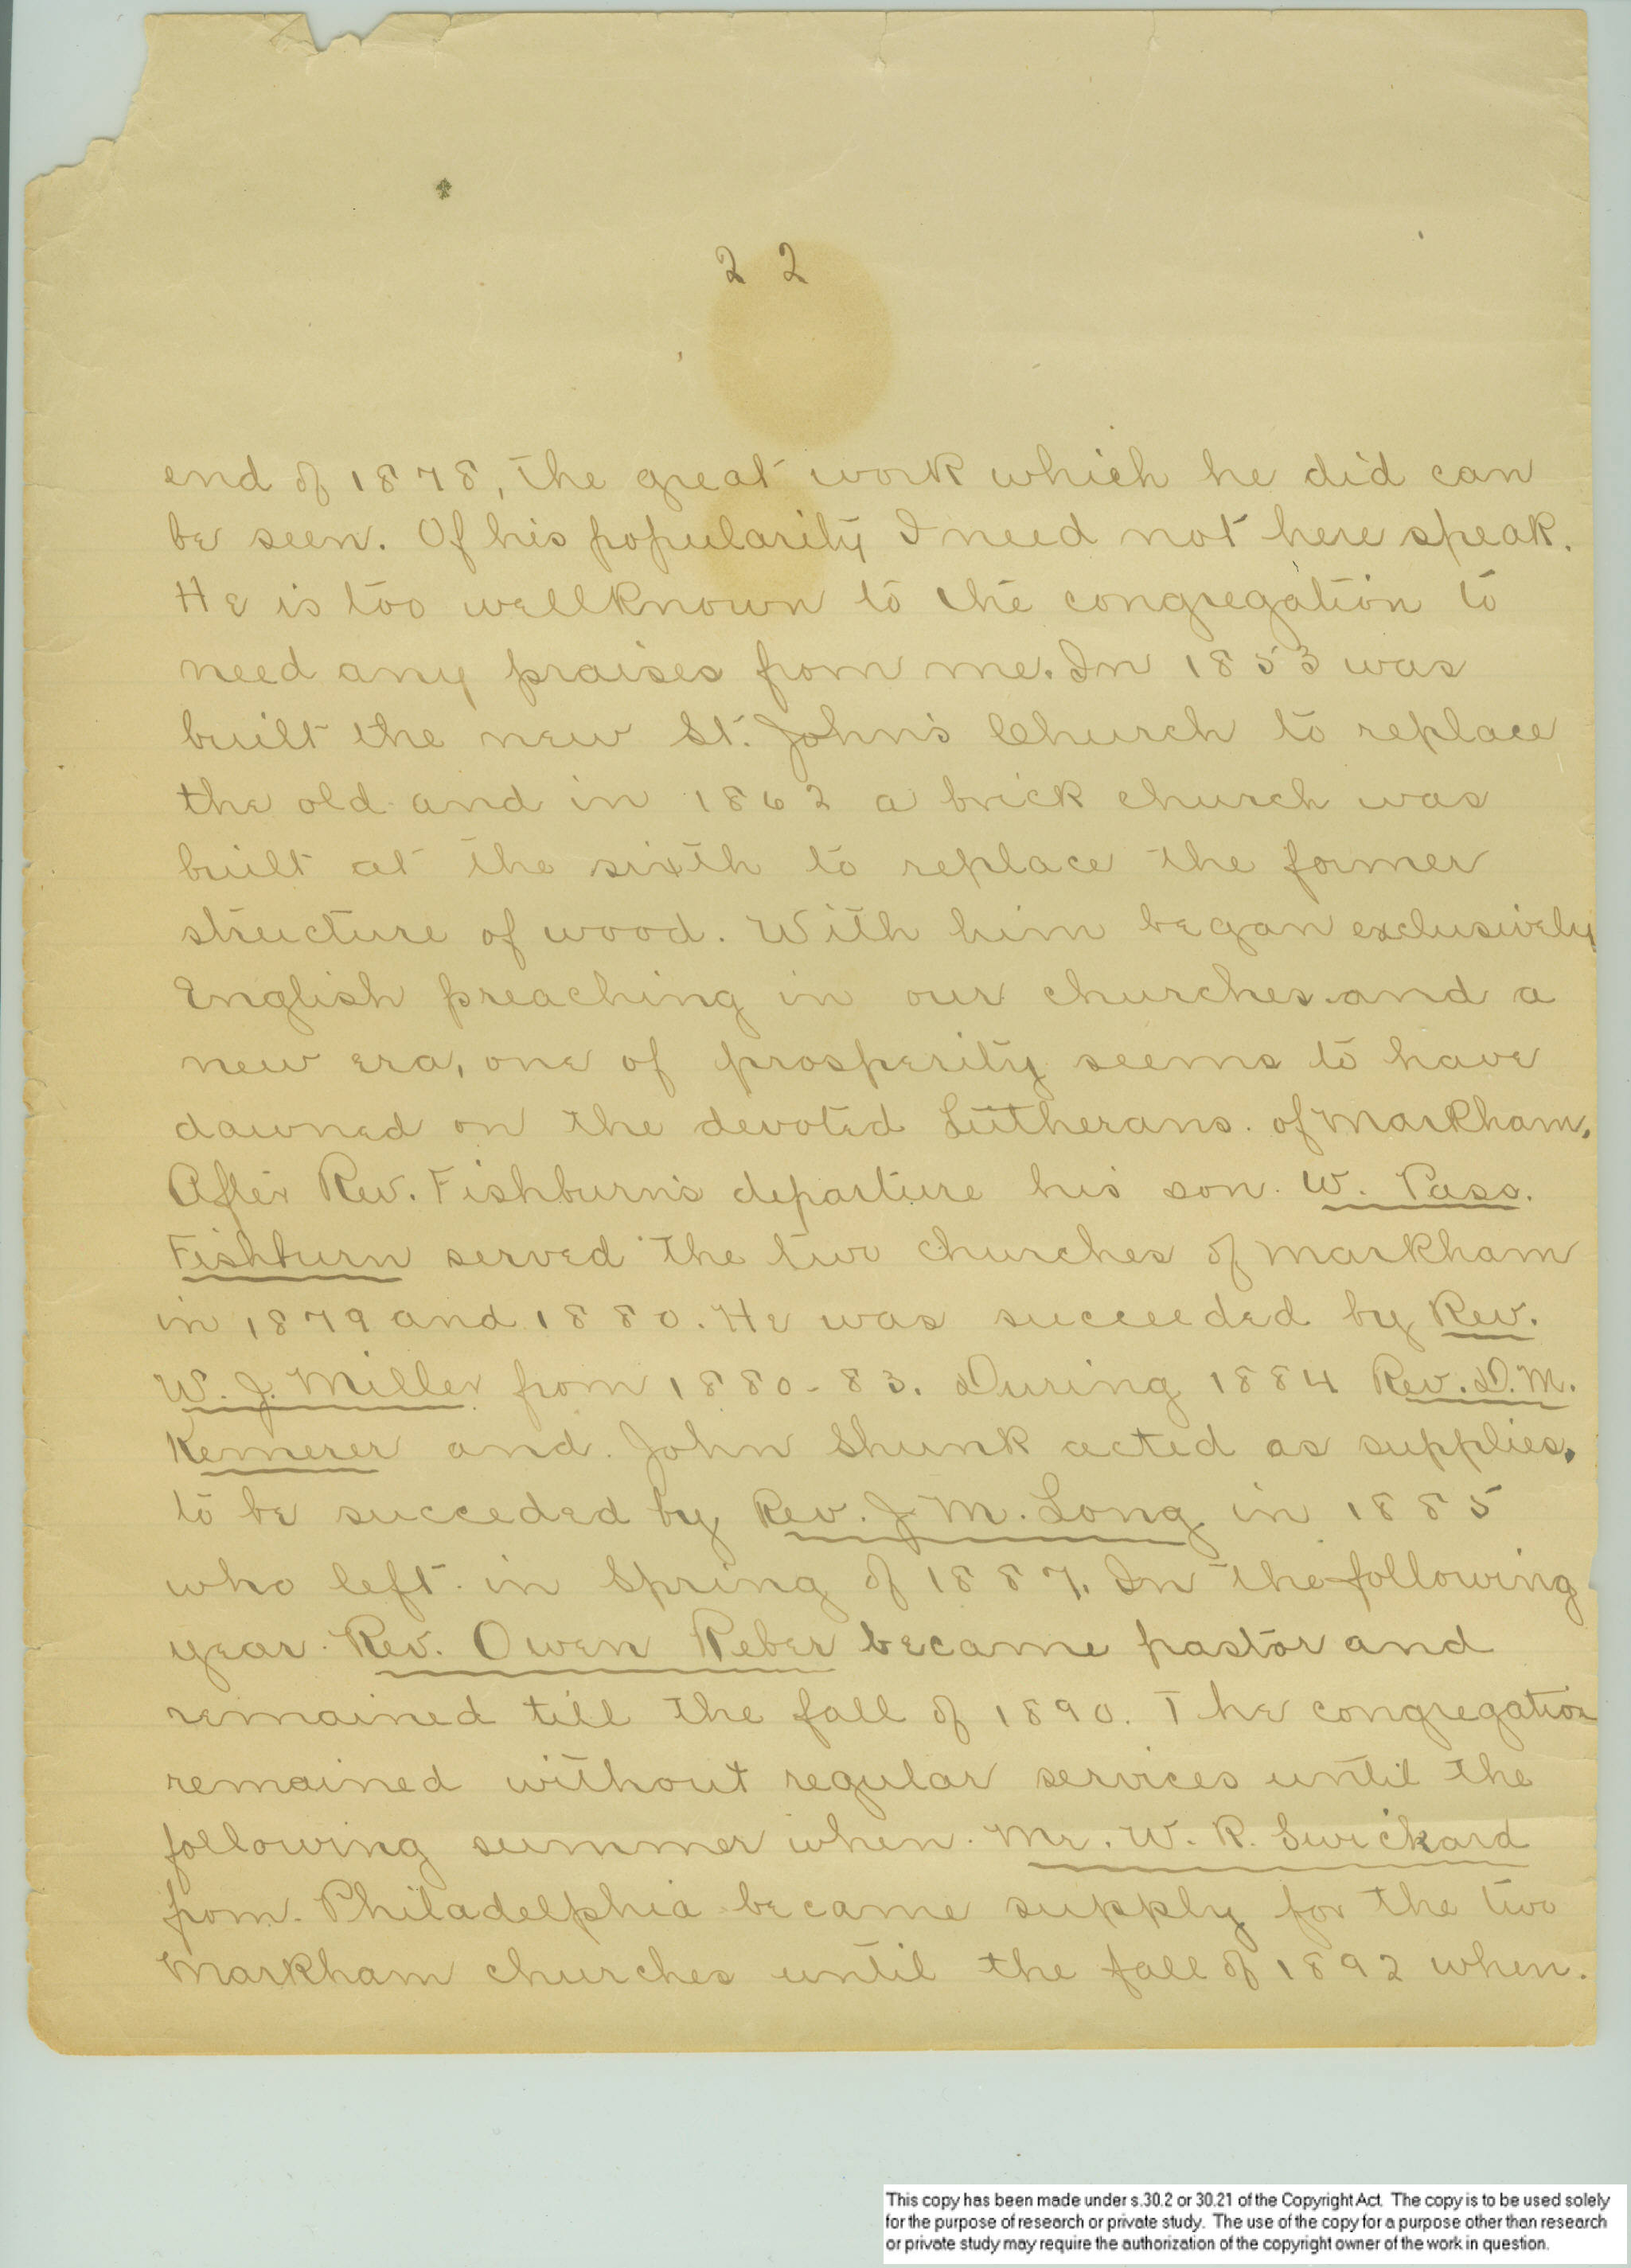 2 2
end of 1878, the great work which he did can
be seen. Of his popularity I need not here speak.
He is too wellknown to the congregation to
need any praises from me. In 1853 was
built the new St. John's Church to replace
the old and in 1862 a brick church was
built at the sixth to replace the former
structure of wood. With him began exclusively
English preaching in our churches and a
new era, one of prosperity seems to have
dawned on the devoted Lutherans. of Markham.
After Rev. Fishburn's departure his son. W. Pass.
Fishburn served the two churches of Markham
in 1879 and 1880. He was succeeded by Rev.
W. J. Miller from 1880-83. During 1884 Rev. D. M.
Kemerer and John Shunk acted as supplies.
to be succeded by Rev. J. M. Long in 1885
who left in Spring of 1887. In the following
year Rev. Owen Reber became pastor and
remained till the fall of 1890. The congregation
remained without regular services until the
following summer when Mr. W. R. Swickard
from Philadelphia became supply for the two
Markham churches until the fall of 1892 when.
This copy has been made under s.30.2 or 30.21 of the Copyright Act. The copy is to be used solely
for the purpose of research or private study. The use of the copy for a purpose other than research
or private study may require the authorization of the copyright owner of the work in question.